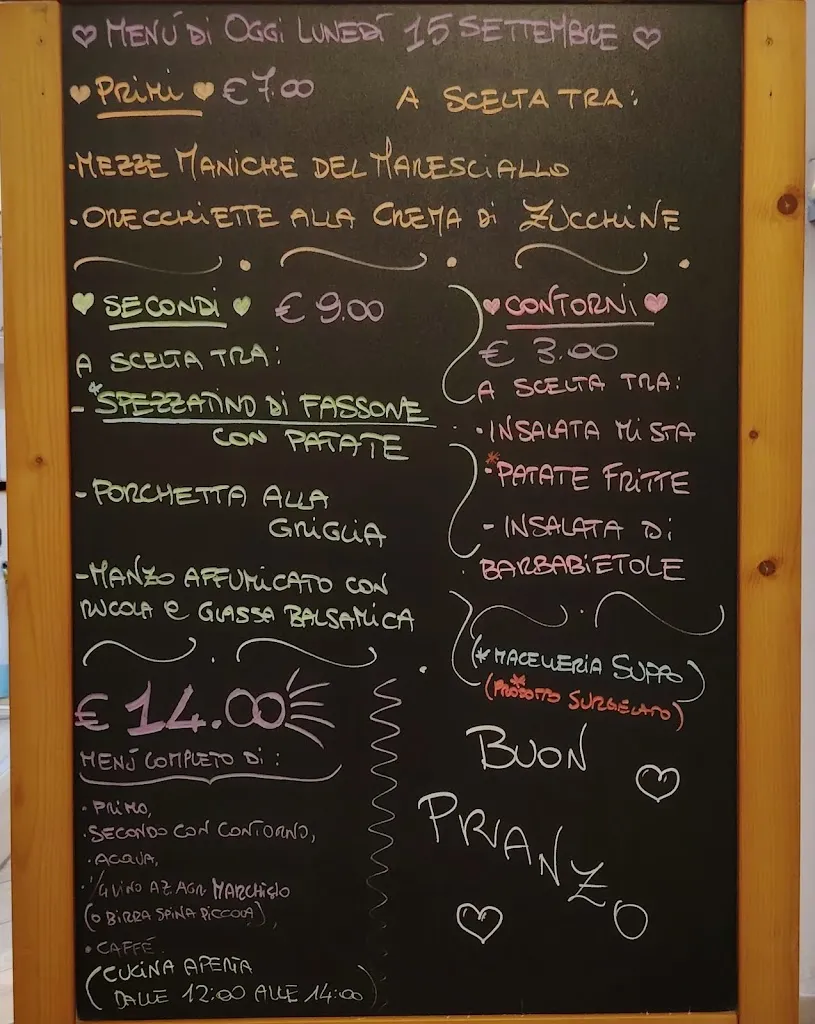 MENÚ DI OGGI LUNEDÍ 15 SETTEMBRE
PRIMI € 7.00 A SCELTA TRA:
·MEZZE MANICHE DEL MARESCIALLO
·ORECCHIETTE ALLA CREMA DI ZUCCHINE
SECONDI € 9.00
A SCELTA TRA:
- *SPEZZATINO DI FASSONE
CON PATATE
-PORCHETTA ALLA
GRIGLIA
-MANZO AFFUMICATO CON
RUCOLA e GLASSA BALSAMICA
CONTORNI
€ 3.00
A SCELTA TRA:
·INSALATA MISTA
*·PATATE FRITTE
- INSALATA DI
BARBABIETOLE
(*MACELLERIA SUPPO)
(*PRODOTTO SURGELATO)
€ 14.00
MENÚ COMPLETO DI:
·PRIMO,
·SECONDO CON CONTORNO,
·ACQUA,
·1/4 VINO AZ. AGR. MARCHISIO
(O BIRRA SPINA PICCOLA),
·CAFFÉ
(CUCINA APERTA
DALLE 12:00 ALLE 14:00)
BUON
PRANZO